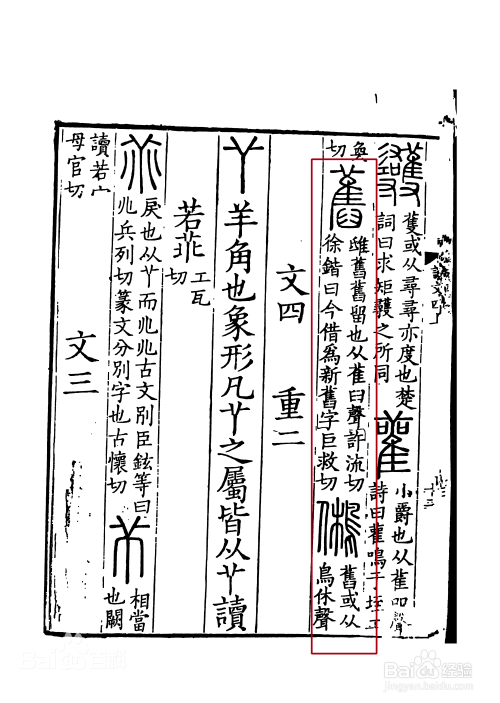 蒦或从尋尋亦度也楚
詞曰求矩彠之所同
小爵也从雈吅聲
詩曰雚鳴于垤工
奐切
舊
雎舊舊留也从雈臼聲許流切
徐鍇曰今借爲新舊字巨救切
鵂
舊或从
鳥休聲
文四 重二
𦫳羊角也象形凡𦫳之屬皆从𦫳讀
若乖
工瓦
切
戾也从𦫳而兆兆古文別臣鉉等曰
兆兵列切篆文分別字也古懷切
相當
也闕
讀若宀
母官切
文三
Baidu百科
Baidu经验
jingyan.baidu.com